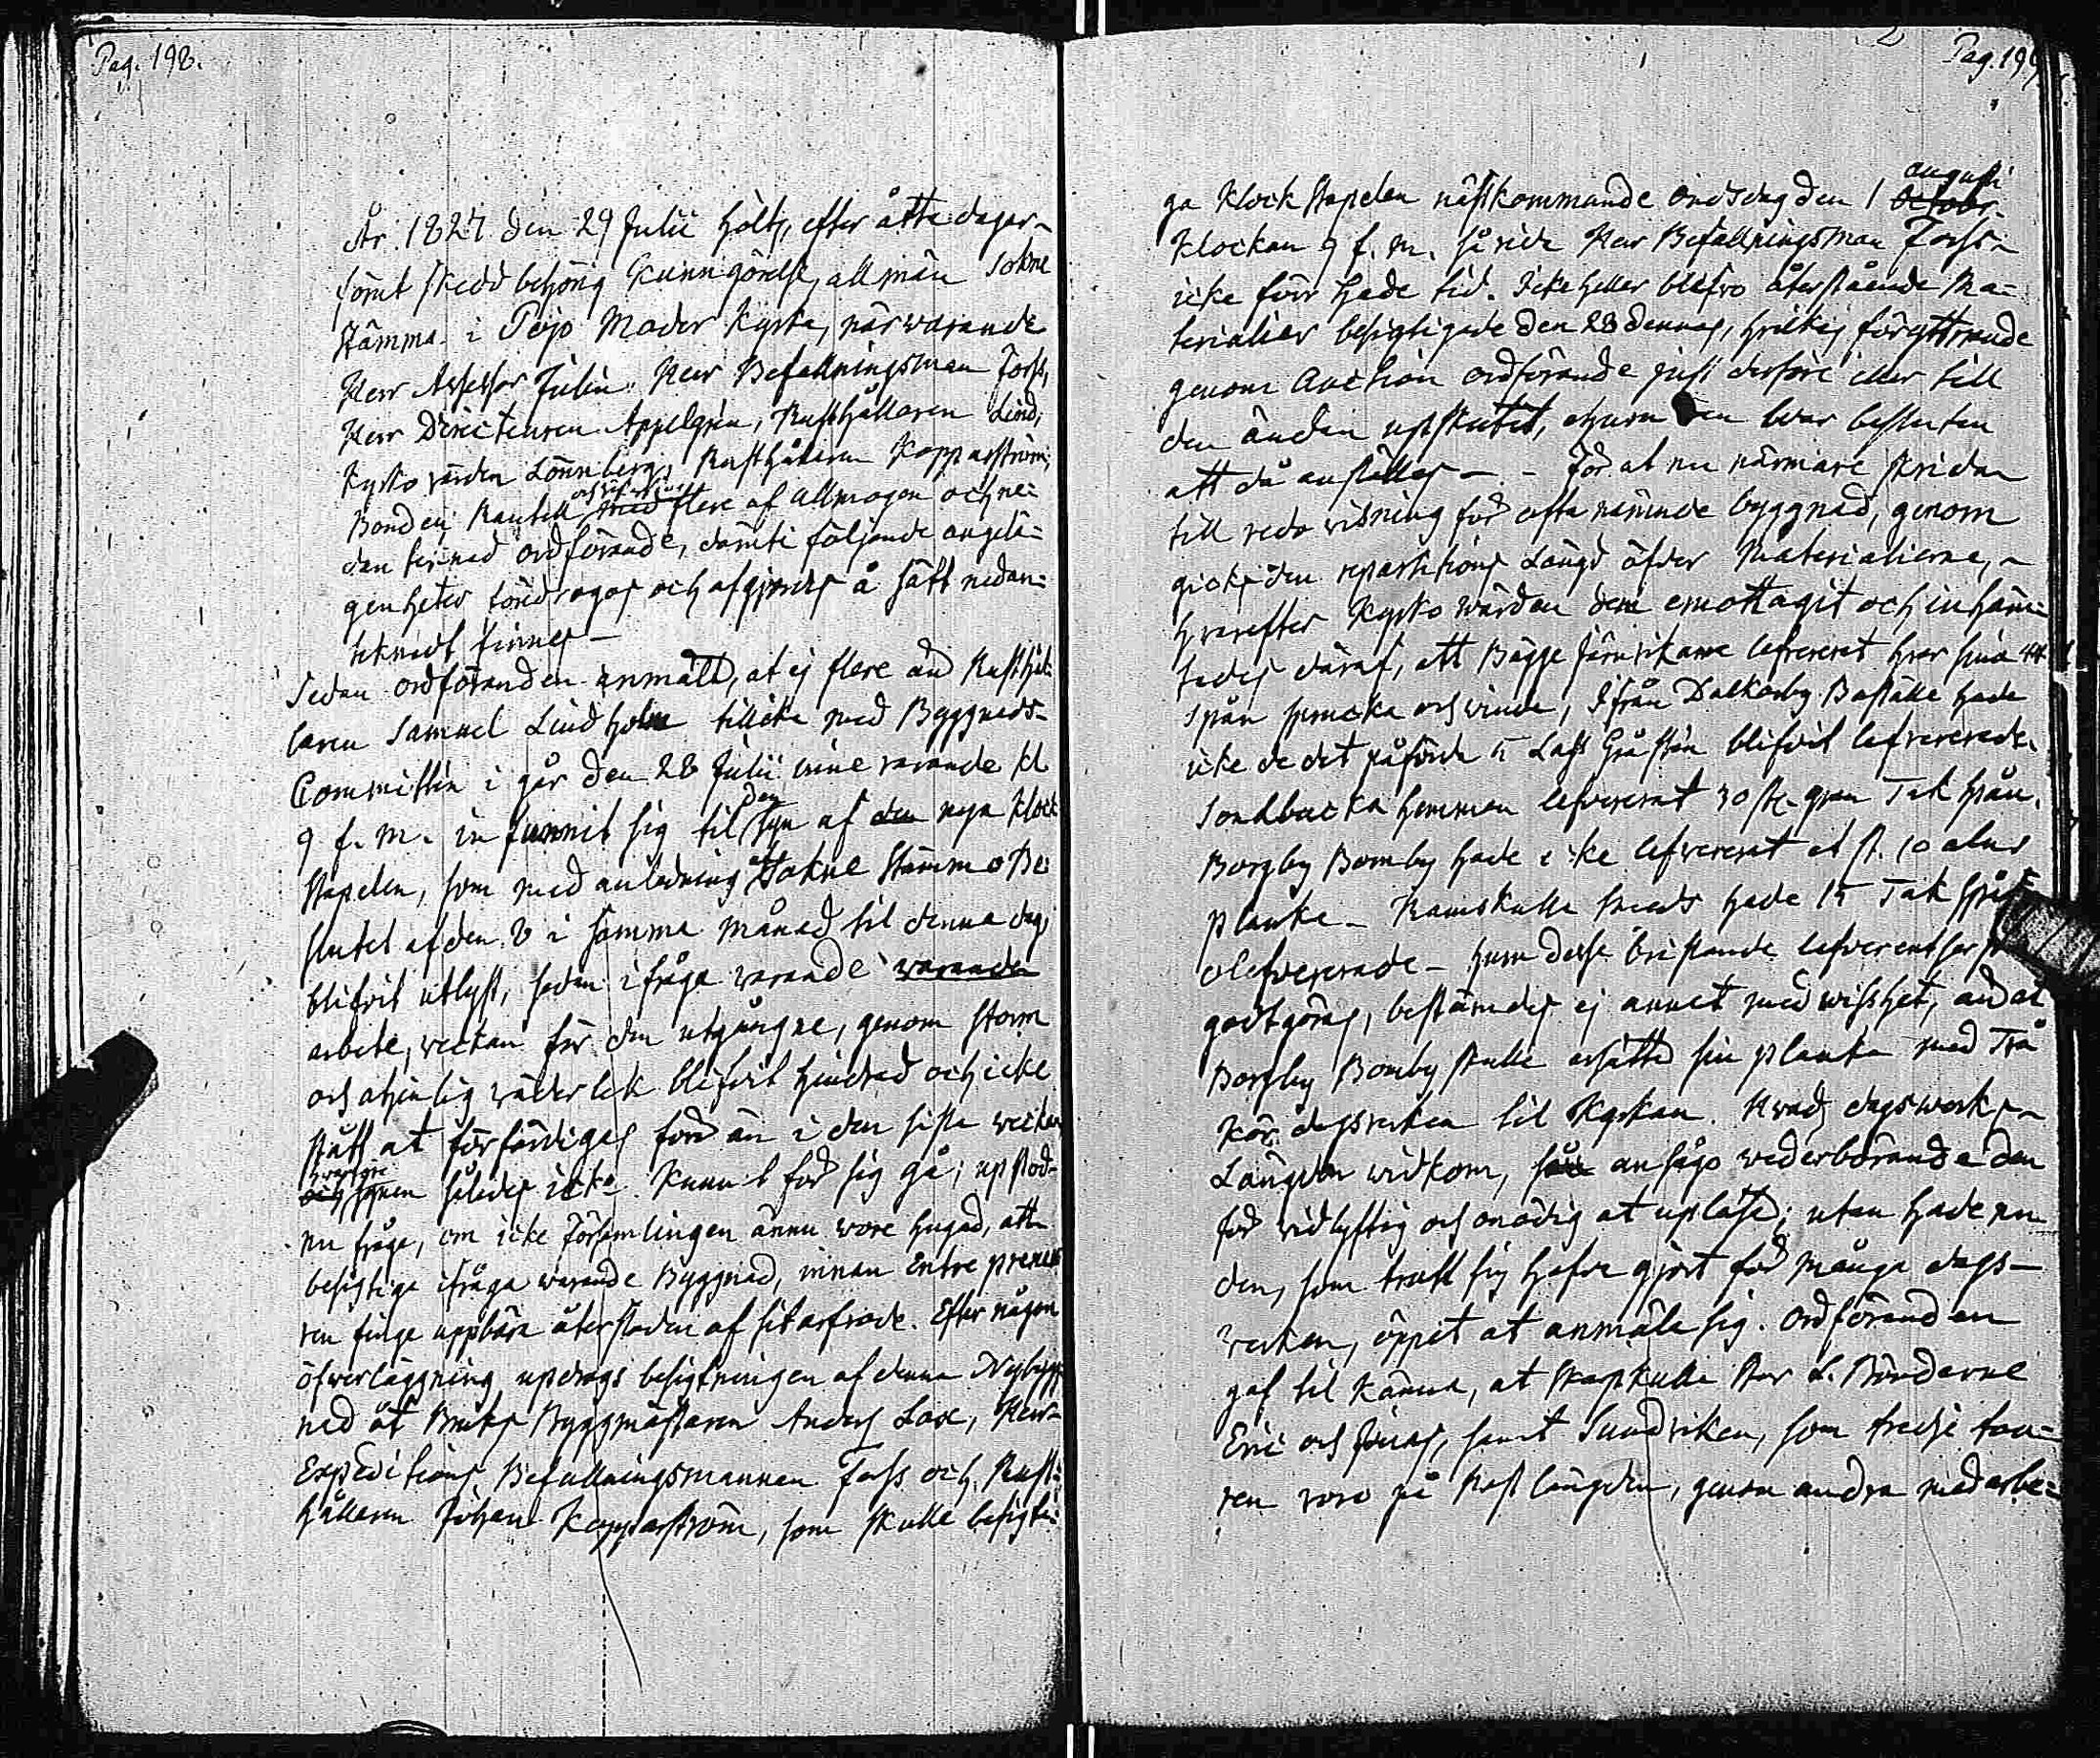 Pag. 198.
År 1827 den 29 Julii hölts, efter åtta dagar
förut skedd behörig Kunngörelse, allmän Sokne
stämma i Pojo Moder Kyrka, närwarande
Herr Assessor Julin, Herr Befallningsman Forss,
Herr Directeuren Appelgren, Rusthållaren Lind,
Kyrko värden Lönnberg, Rusthållaren Kopparström,
Bonden flere af Allmogen och ne-
dan tecknad ordförande, då följande angelä-
genheter föredrogos och afgjordes å sätt nedan-
tecknadt finnes —
Sedan ordföranden anmält, at ej flere än Rusthål-
laren Samuel Lindholm tillika med Byggnads-
Committén i går den 28 Julii inne varande kl.
9 f. m. infunnit sig til den syn af den nya Klock
stapelen, som med anledning af Sokne Stämmo Be-
slutet af den 8 i samma månad til denna dag
blifvit utlyst, sedan ifråga varande varande
arbete, veckan för den utgångne, genom storm
och otjenlig väderlek blifvit hindrad och icke
stått at förfärdigas förr än i den sista veckan
hvarföre
och synen således icke kunnat för sig gå; upstod
nu fråga, om icke Församlingen ännu wore hugad, att
besigtiga ifråga warande Byggnad, innan Entrepreneu
ren finge uppbära återstoden af sit arfvode. Efter någon
öfwerläggning updrogs besigtningen af denna Nybygg-
nad åt Bruks Byggmästaren Anders Lax, Herr
Expeditions Befallningsmannen Forss och Rust-
hållaren Johan Kopparström, som skulle besigti-
Pag. 199
ga Klock stapelen nästkommande onsdag den 1 Octobr.
augusti
Klockan 9 f. m. då Herr Befallningsman Forss
icke förr hade tid. Icke heller blefvo återstående Ma-
terialier besigtigade den 28 dennes, hvilkas föryttrande
genom Auction ordförande just derföre eller till
den ändan upskutit, ehuru den war besluten
att då anställas — För at nu närmare skrida
till redo visning för ofta nämnde byggnad, genom
gicks den repartitions Längd öfver Materialierne,
hvarefter Kyrko wärden dem emottagit och inhäm-
tades däraf, att Bägge Järnvikarne lefvererat hvar sina 44
spån och vinde, Ifrån Dalkarby Boställe hade
icke de det påförde 5 Lass Gråsten blifvit lefvererade.
Sondbacka hemman lefvererat 30 st. gran Tak spån.
Borgby Bomby hade icke lefvererat et st. 10 alns
planka — Ramskulla hade 15 Tak
olefvererade — huru desse bristande lefverentser
godtgöras, bestämdes ej annat med wisshet, än at
Borgby Bomby skulle ersätta sin planka med Två
Kör dagsverken til Kyrkan. Hvad dagswerks
Längden widkom, så ansågo wederbörande den
för vidlyftig och onödig at upläsa; utan hade en
den, som trodt sig hafva gjort för många dags-
verken, öppet at anmäla sig. Ordföranden
gaf til känna, at Skarpkulla Bönderne
Eric och Jonas, samt Sundviken, som tredje
ren voro på längden, genom andra med arbe-